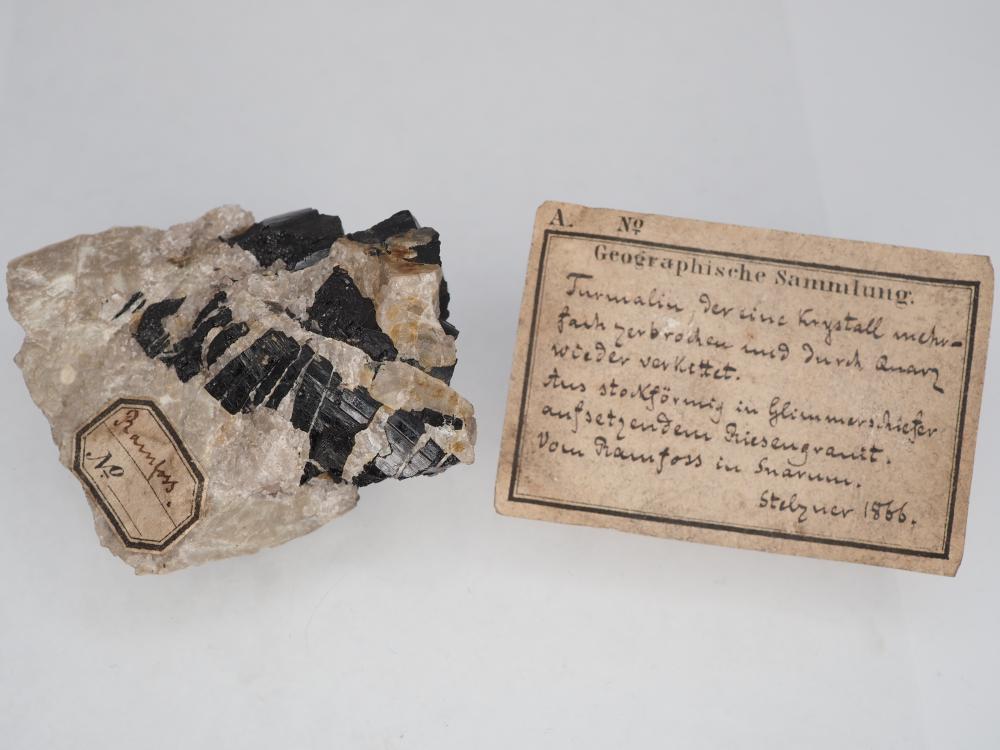 Ramfoss.
No
A. No
Geographische Sammlung.
Turmalin, der eine Krystall mehr-
fach zerbrochen und durch Quarz
wieder verkittet.
Aus stockförmig in Glimmerschiefer
aufsetzendem Riesengranit.
Vom Ramfoss in Snarum.
Stelzner 1866.